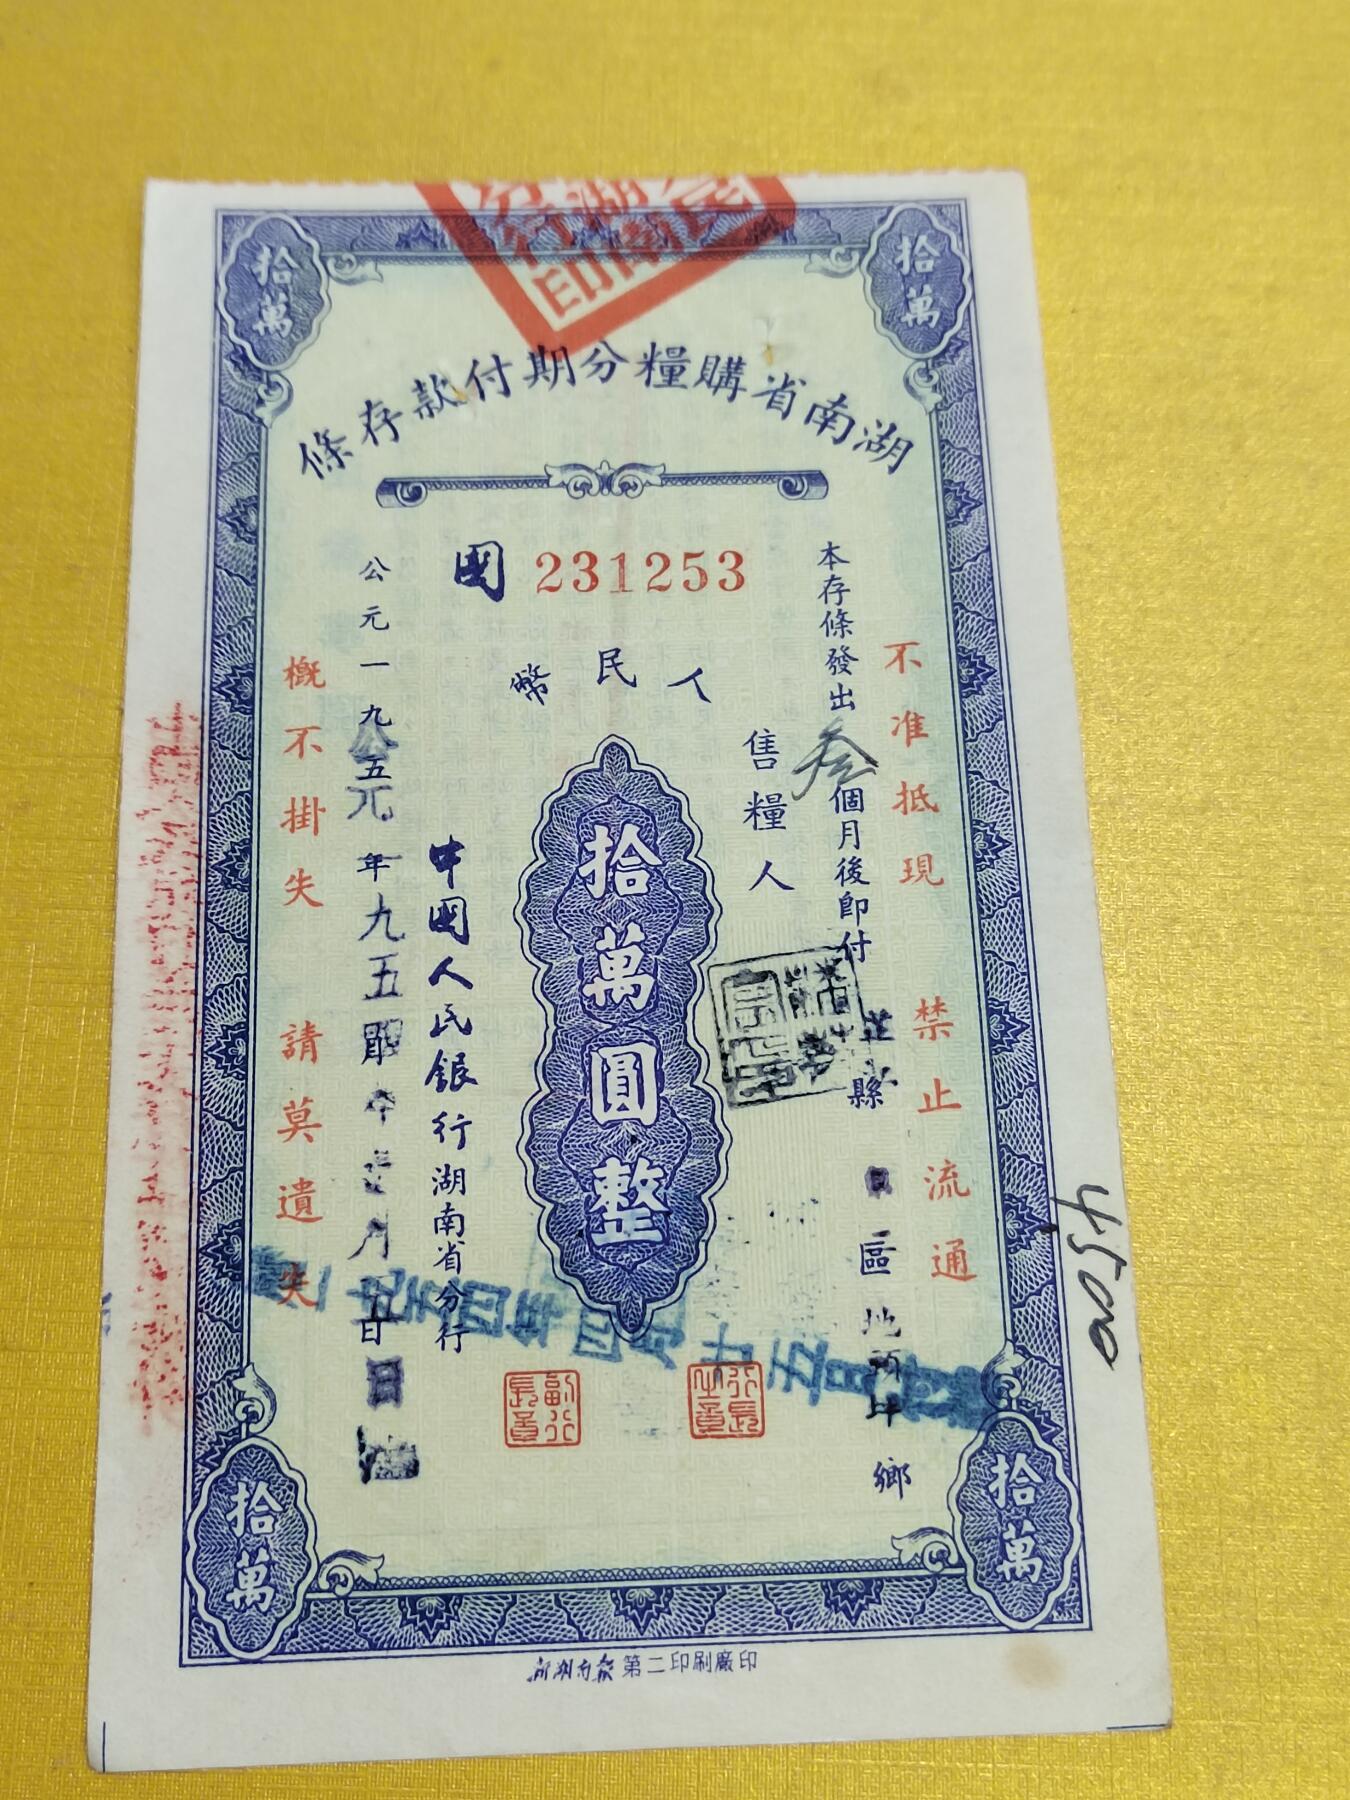 湖南省購糧分期付款存條
拾萬
拾萬
國 231253
人民幣
拾萬圓整
不准抵現 禁止流通
本存條發出叁個月後即付
縣
區
鄉
售糧人
中國人民銀行湖南省分行
公元一九五
年
月
日
概不掛失 請莫遺失
行長之章
副行長章
拾萬
拾萬
新湖南報第二印刷廠印
45000